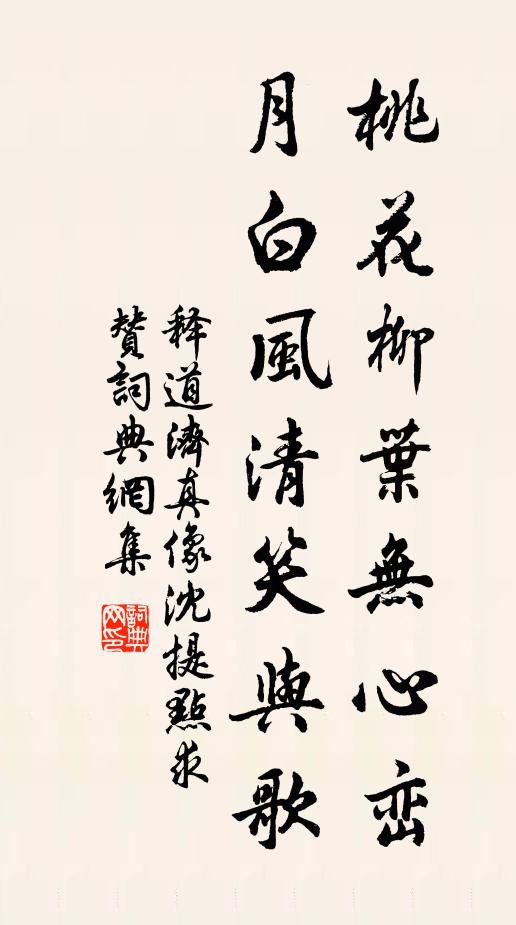 桃花柳葉無心峦
月白風清笑與歌
释道濟真像沈提點求
賛詞典網集
詞典
网印